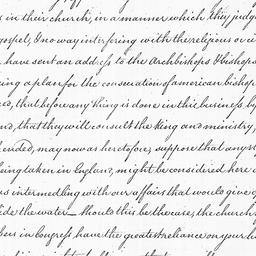 in their church, in a manner which they judge
gospel, & no way interfering with the religious or ci
have sent an address to the Archbishops & bishops
ing a plan for the consecration of american bishop
ed, that before any thing is done in this business by
and, that they will consult the King and ministry,
ended, may now as heretofore, suppose that any st
eing taken in England, might be considered here a
as intermedling with our affairs that would give o
ide the water — should this be the case, the church
bers in Congress have the greatest reliance on your li